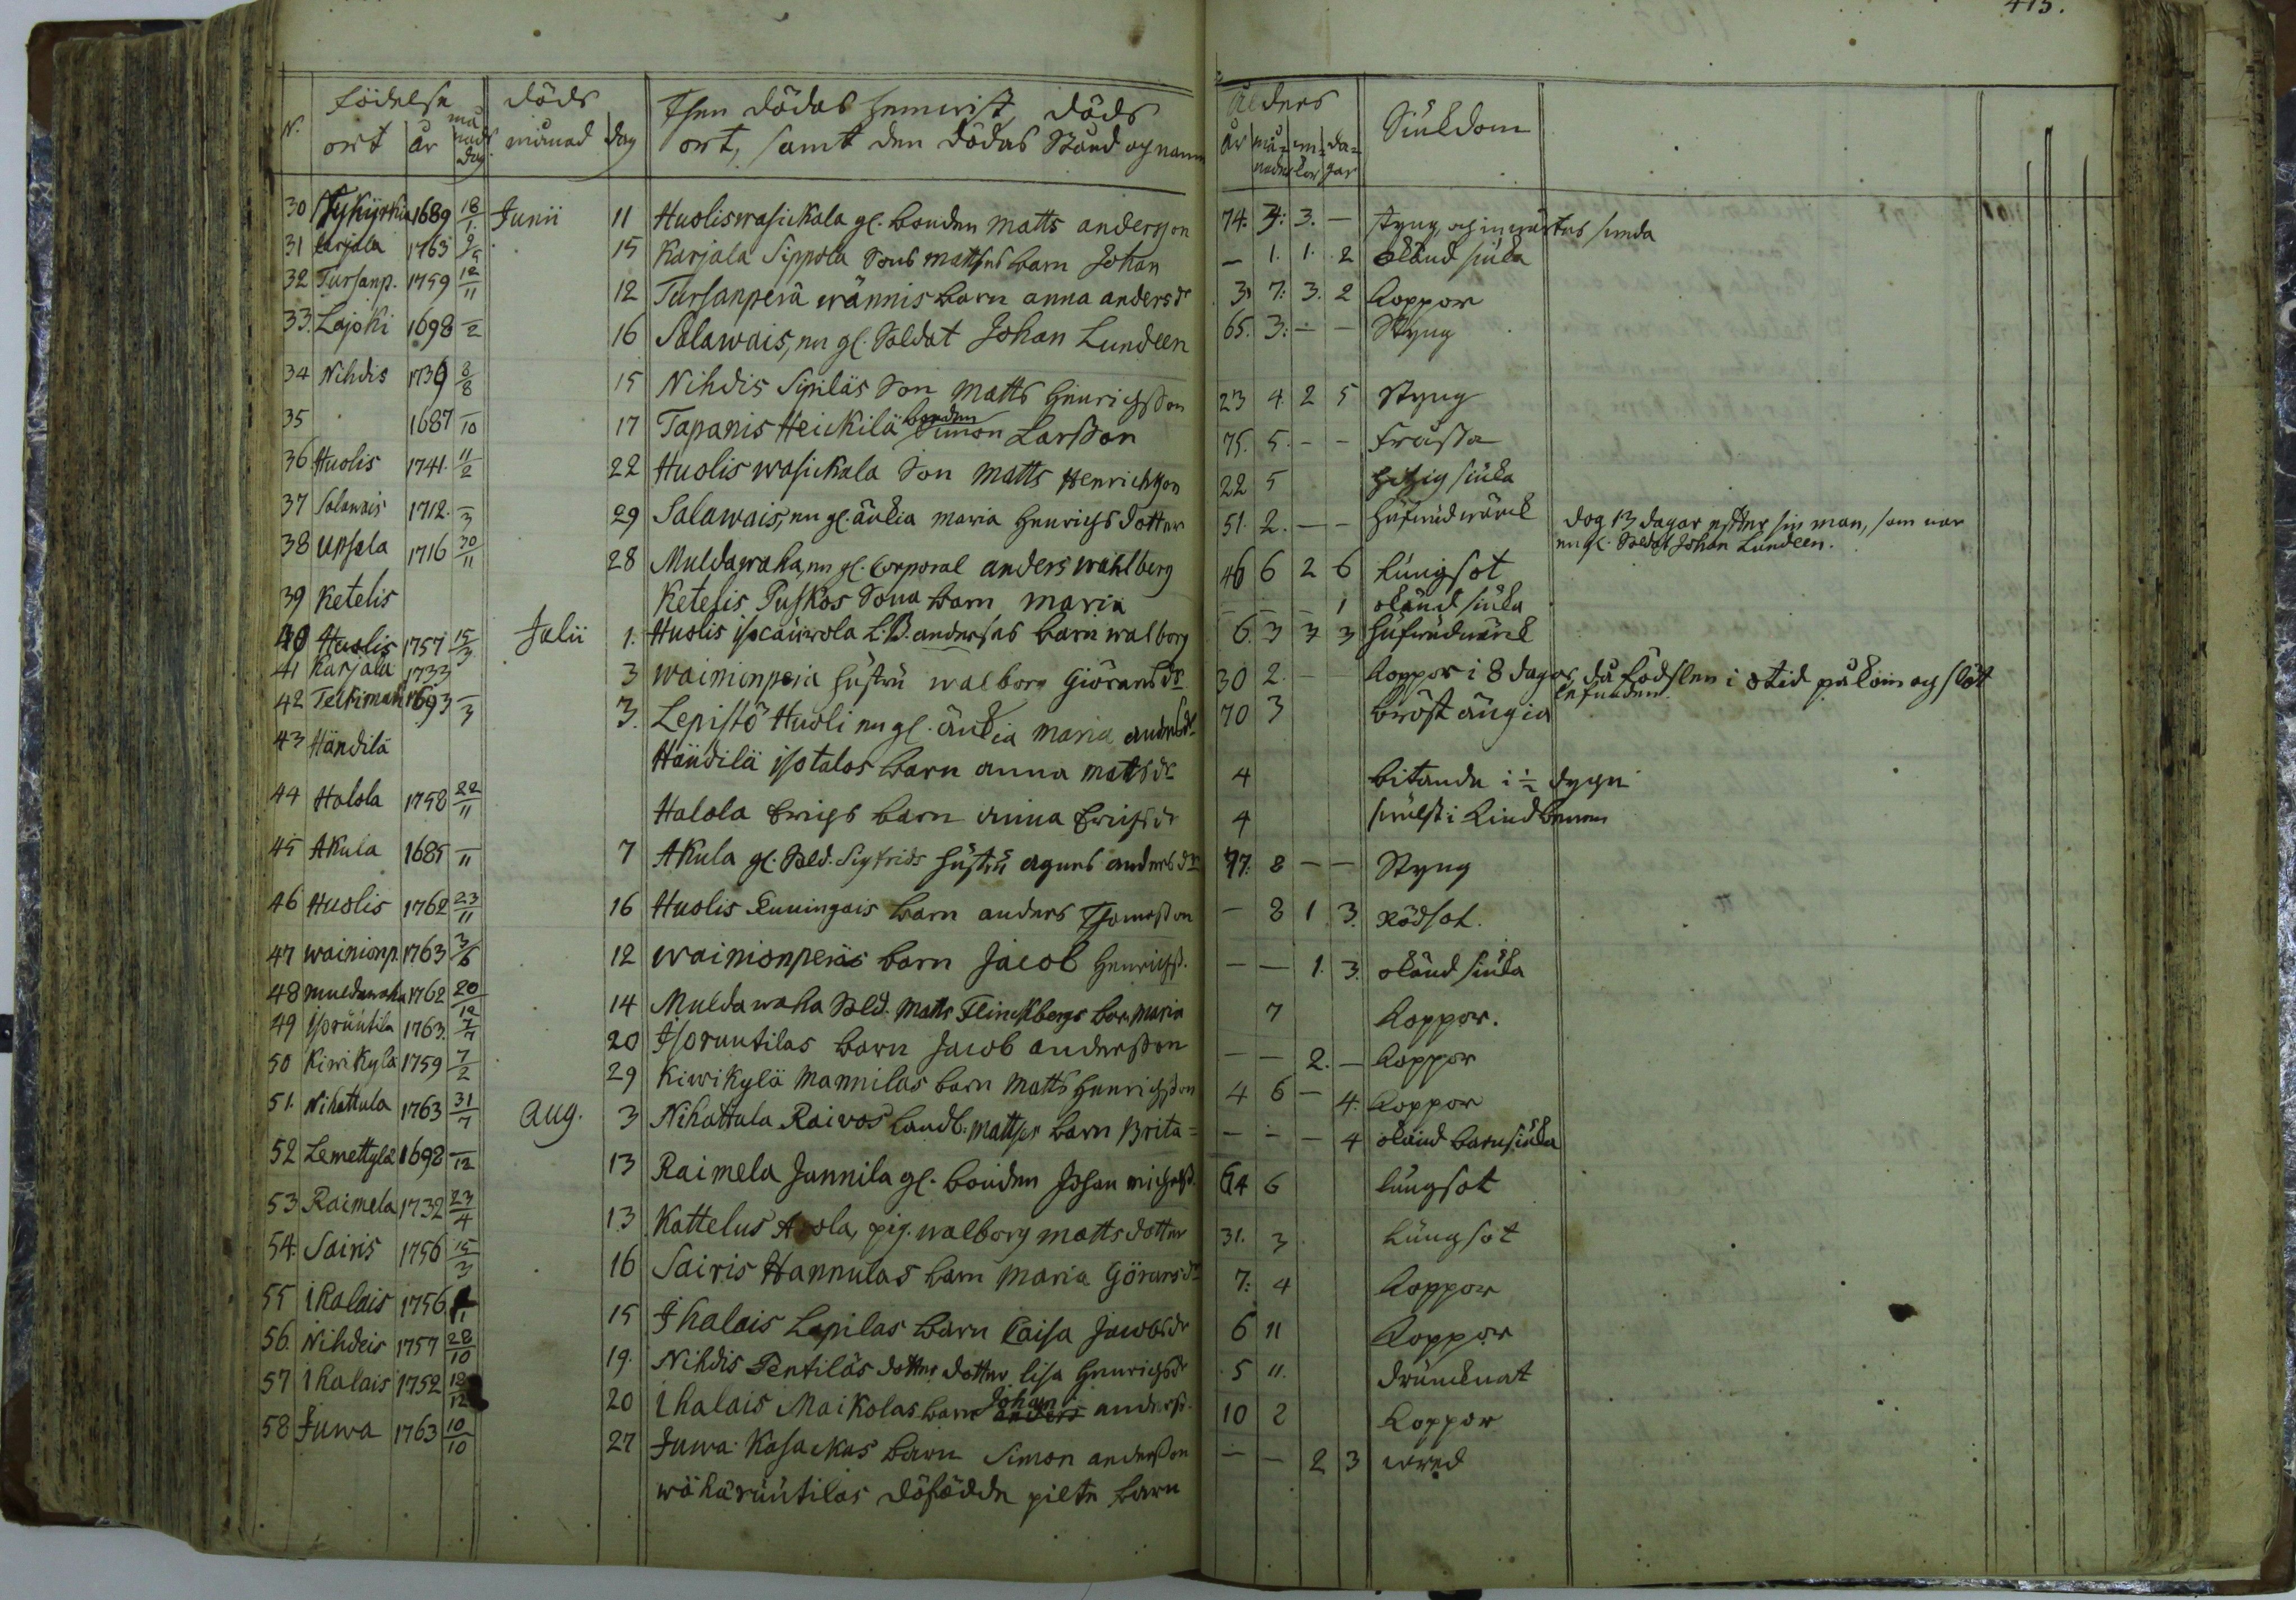 415.
N. födelse ort år månads dag döds månad dag Then dödas hemvist, döds ort, samt den dödas Stånd och namn ålders år månader wekor dagar Siukdom
30 Nykyrkia 1689 18/1 Junii 11 Huolis wasickala gl. bonden Matts andersson 74. 4: 3. — styng och invärtes siuka
31 Karjala 1763 15 Karjala Sippola Sons Mattses barn Johan — 1. 1. 2 okänd siuka
32 Tursanp. 1759 12/11 12 Tursanperä wännis barn anna andersdr 3. 7: 3. 2 Koppor
33. Lajoki 1698 —/2 16 Salawais, en gl. Soldat Johan Lundeen 65. 3: — — Styng
34 Nihdis 1739 8/8 15 Nihdis Sipiläs Son Matts Henrichsson 23 4 2 5 Styng
35 1687 —/10 17 Tapanis Heickilä bonden Simon Larsson 75. 5. — — Frässa
36 Huolis 1741. 11/2 22 Huolis wasickala Son Matts Henrichsson 22 5 hitzig siuka
37 Salawais 1712. —/3 29 Salawais, en gl. änkia maria Henrichs dotter 51. 2. — — hufwudwärck dog 13 dagar efter sin man, som war en gl. Soldat Johan Lundeen.
38 Upsala 1716 30/11 28 Muldawaha, en gl. Corporal anders wahlberg 46 6 2 6 Lungsot
39 Ketelis Ketelis Puskos Sona barn maria — — — 1 okänd siuka
40 Huolis 1757 15/3 Julii 1. Huolis isocaurola L: B. anderses barn walborg 6. 3 3 3 hufwudwärck
41 Karjala 1733 3 wainionpera hustru walborg Giöransdr 30 2. — — Koppor i 8 dagar, då födslen i otid påkom och slöt
42 1693 —/3 3. Lepistö Huoli en gl. änkia maria andersdr 70 3 bröst ångia
43 Händilä Händilä isotalos barn anna matsdr 4 bitande i ½ dygn
44 Halola 1758 22/11 Halola Erichs barn anna Erichsdr 4
45 Akula 1685 —/11 7 Akula gl. Sold. Sigfrids hustru agnes andersdr 77. 8 — — Styng
46 Huolis 1762 23/11 16 Huolis Kuningais barn anders Thomasson — 8 1. 3. Rödsot.
47 wainionp. 1763 3/6 12 wainionperäs barn Jacob Henrichss. — — 1. 3. okänd siuka
48 muldawaha 1762 20/12 14 Muldawaha Sold. Matts Flinckbergs barn maria 7 Koppor.
49 isoruutila 1763. 7/7 20 Isoruutilas barn Jacob andersson — — 2. — Koppor
50 Kiwikylä 1759 7/2 29 Kiwikylä Mannilas barn Matts Henrichsson 4 6 — 4. Koppor
51. Nihattula 1763 31/7 Aug. 3 Nihattula Raivos landb. Mattses barn Brita — — — 4 okänd barnsiuka
52 Lemettylä 1698 —/12 13 Raimela Jannila gl. bonden Johan michelss. 64 6 lungsot
53 Raimela 1732 23/4 13 Kattelus Arola, pig. walborg mattsdotter 31. 3 Lungsot
54. Sairis 1756 15/3 16 Sairis Hannulas barn maria Göransdr 7: 4 Koppor
55 ihalais 1756 15 Ihalais Lapilas barn Caisa Jacobsdr 6 11 Koppor
56. Nihdeis 1757 28/10 19. Nihdis Pentiläs dotters dotter lisa Henrichsdr 5 11. drunknat
57 ihalais 1752 12 20 ihalais Maikolas barn Johan anderss. 10 2 Koppor
58 Juwa 1763 10/10 27 Juwa. Kasackas barn Simon andersson — — 2 3 wred
wähäruutilas döfödde pilte barn